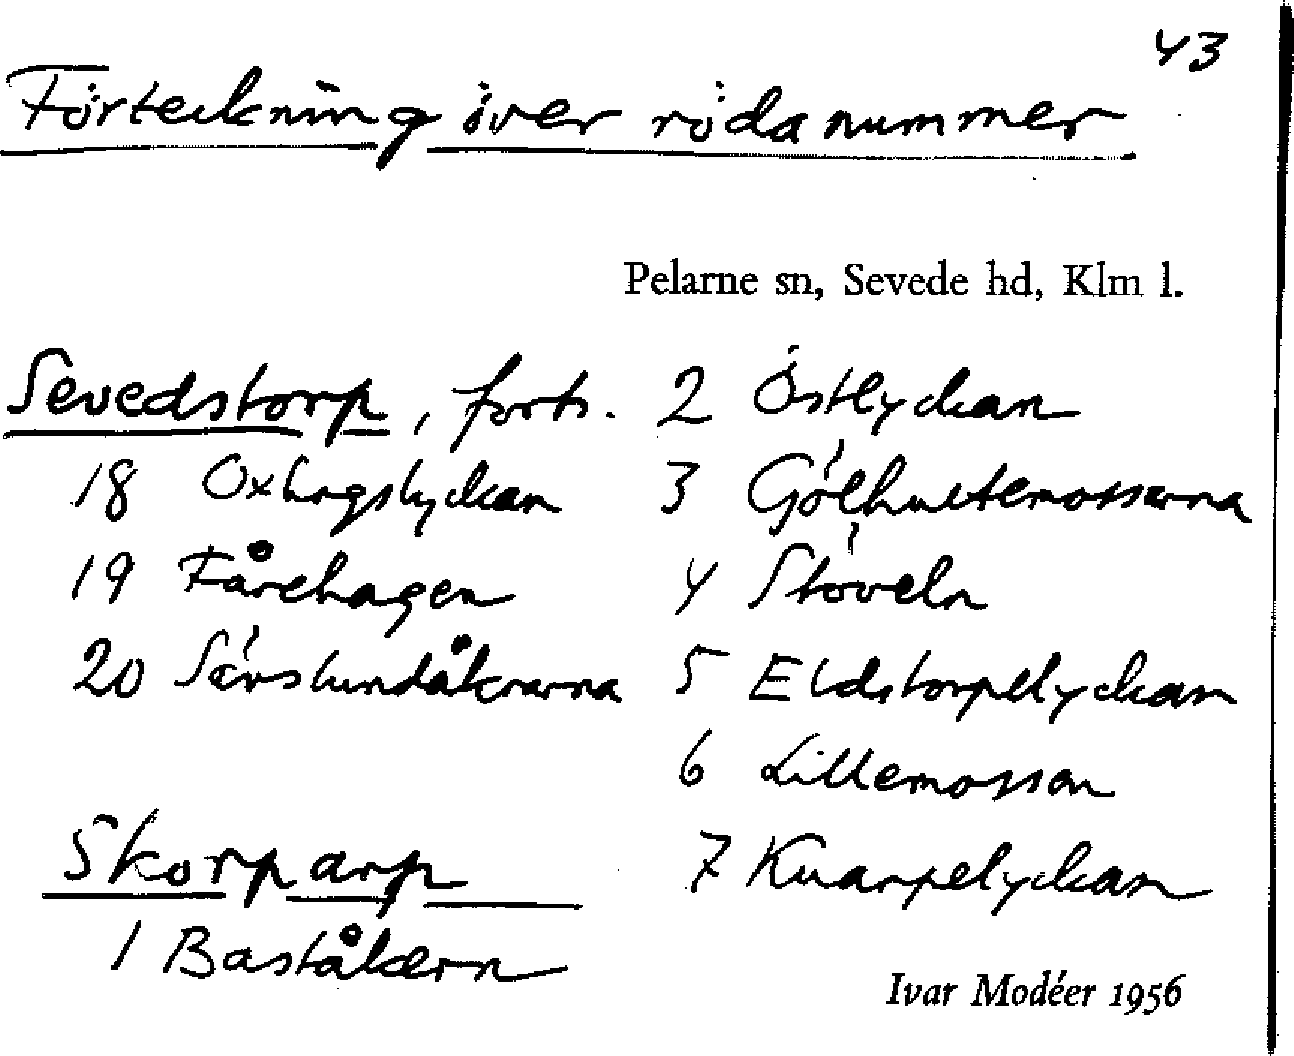 43
Förteckning över röda nummer
Pelarne sn, Sevede hd, Klm l.
Sevedstorp, forts.
18 Oxhagslyckan
19 Fårehagen
20 Särslundåkrarna
Skorparp
1 Baståkern
2 Östlyckan
3 Gölhultemossarna
4 Stöveln
5 Eldstorpelyckan
6 Lillemossen
7 Knarpelyckan
Ivar Modéer 1956